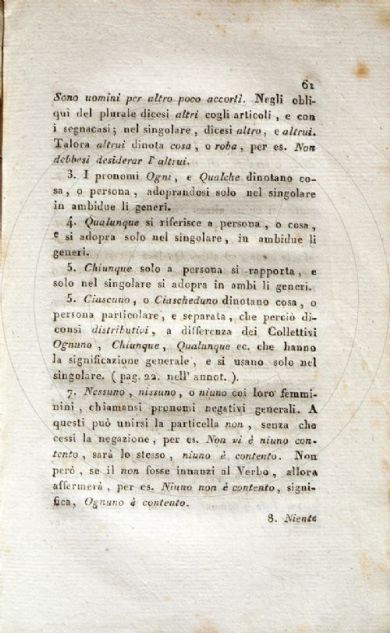 61
Sono uomini per altro poco accorti. Negli obli-
qui del plurale dicesi altri cogli articoli, e con
i segnacasi; nel singolare, dicesi altro, e altrui.
Talora altrui dinota cosa, o roba, per es. Non
debbesi desiderar l'altrui.
3. I pronomi Ogni, e Qualche dinotano co-
sa, o persona, adoprandosi solo nel singolare
in ambidue li generi.
4. Qualunque si riferisce a persona, o cosa,
e si adopra solo nel singolare, in ambidue li
generi.
5. Chiunque solo a persona si rapporta, e
solo nel singolare si adopra in ambi li generi.
5. Ciascuno, o Ciascheduno dinotano cosa, o
persona particolare, e separata, che perciò di-
consi distributivi, a differenza dei Collettivi
Ognuno, Chiunque, Qualunque ec. che hanno
la significazione generale, e si usano solo nel
singolare. (pag. 22. nell' annot.).
7. Nessuno, nissuno, o niuno coi loro femmi-
nini, chiamansi pronomi negativi generali. A
questi può unirsi la particella non, senza che
cessi la negazione, per es. Non vi è niuno con-
tento, sarà lo stesso, niuno è contento. Non
però, se il non fosse innanzi al Verbo, allora
affermerà, per es. Niuno non è contento, signi-
fica, Ognuno è contento.
8. Niente